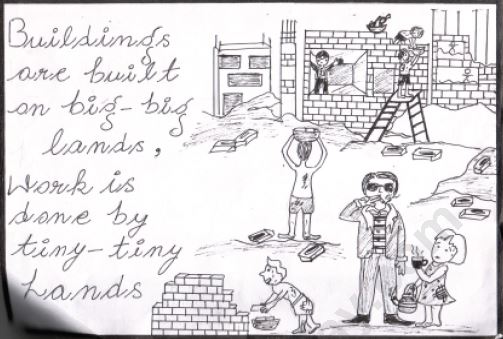 Buildings
are built
on big-big
lands,
Work is
done by
tiny-tiny
hands